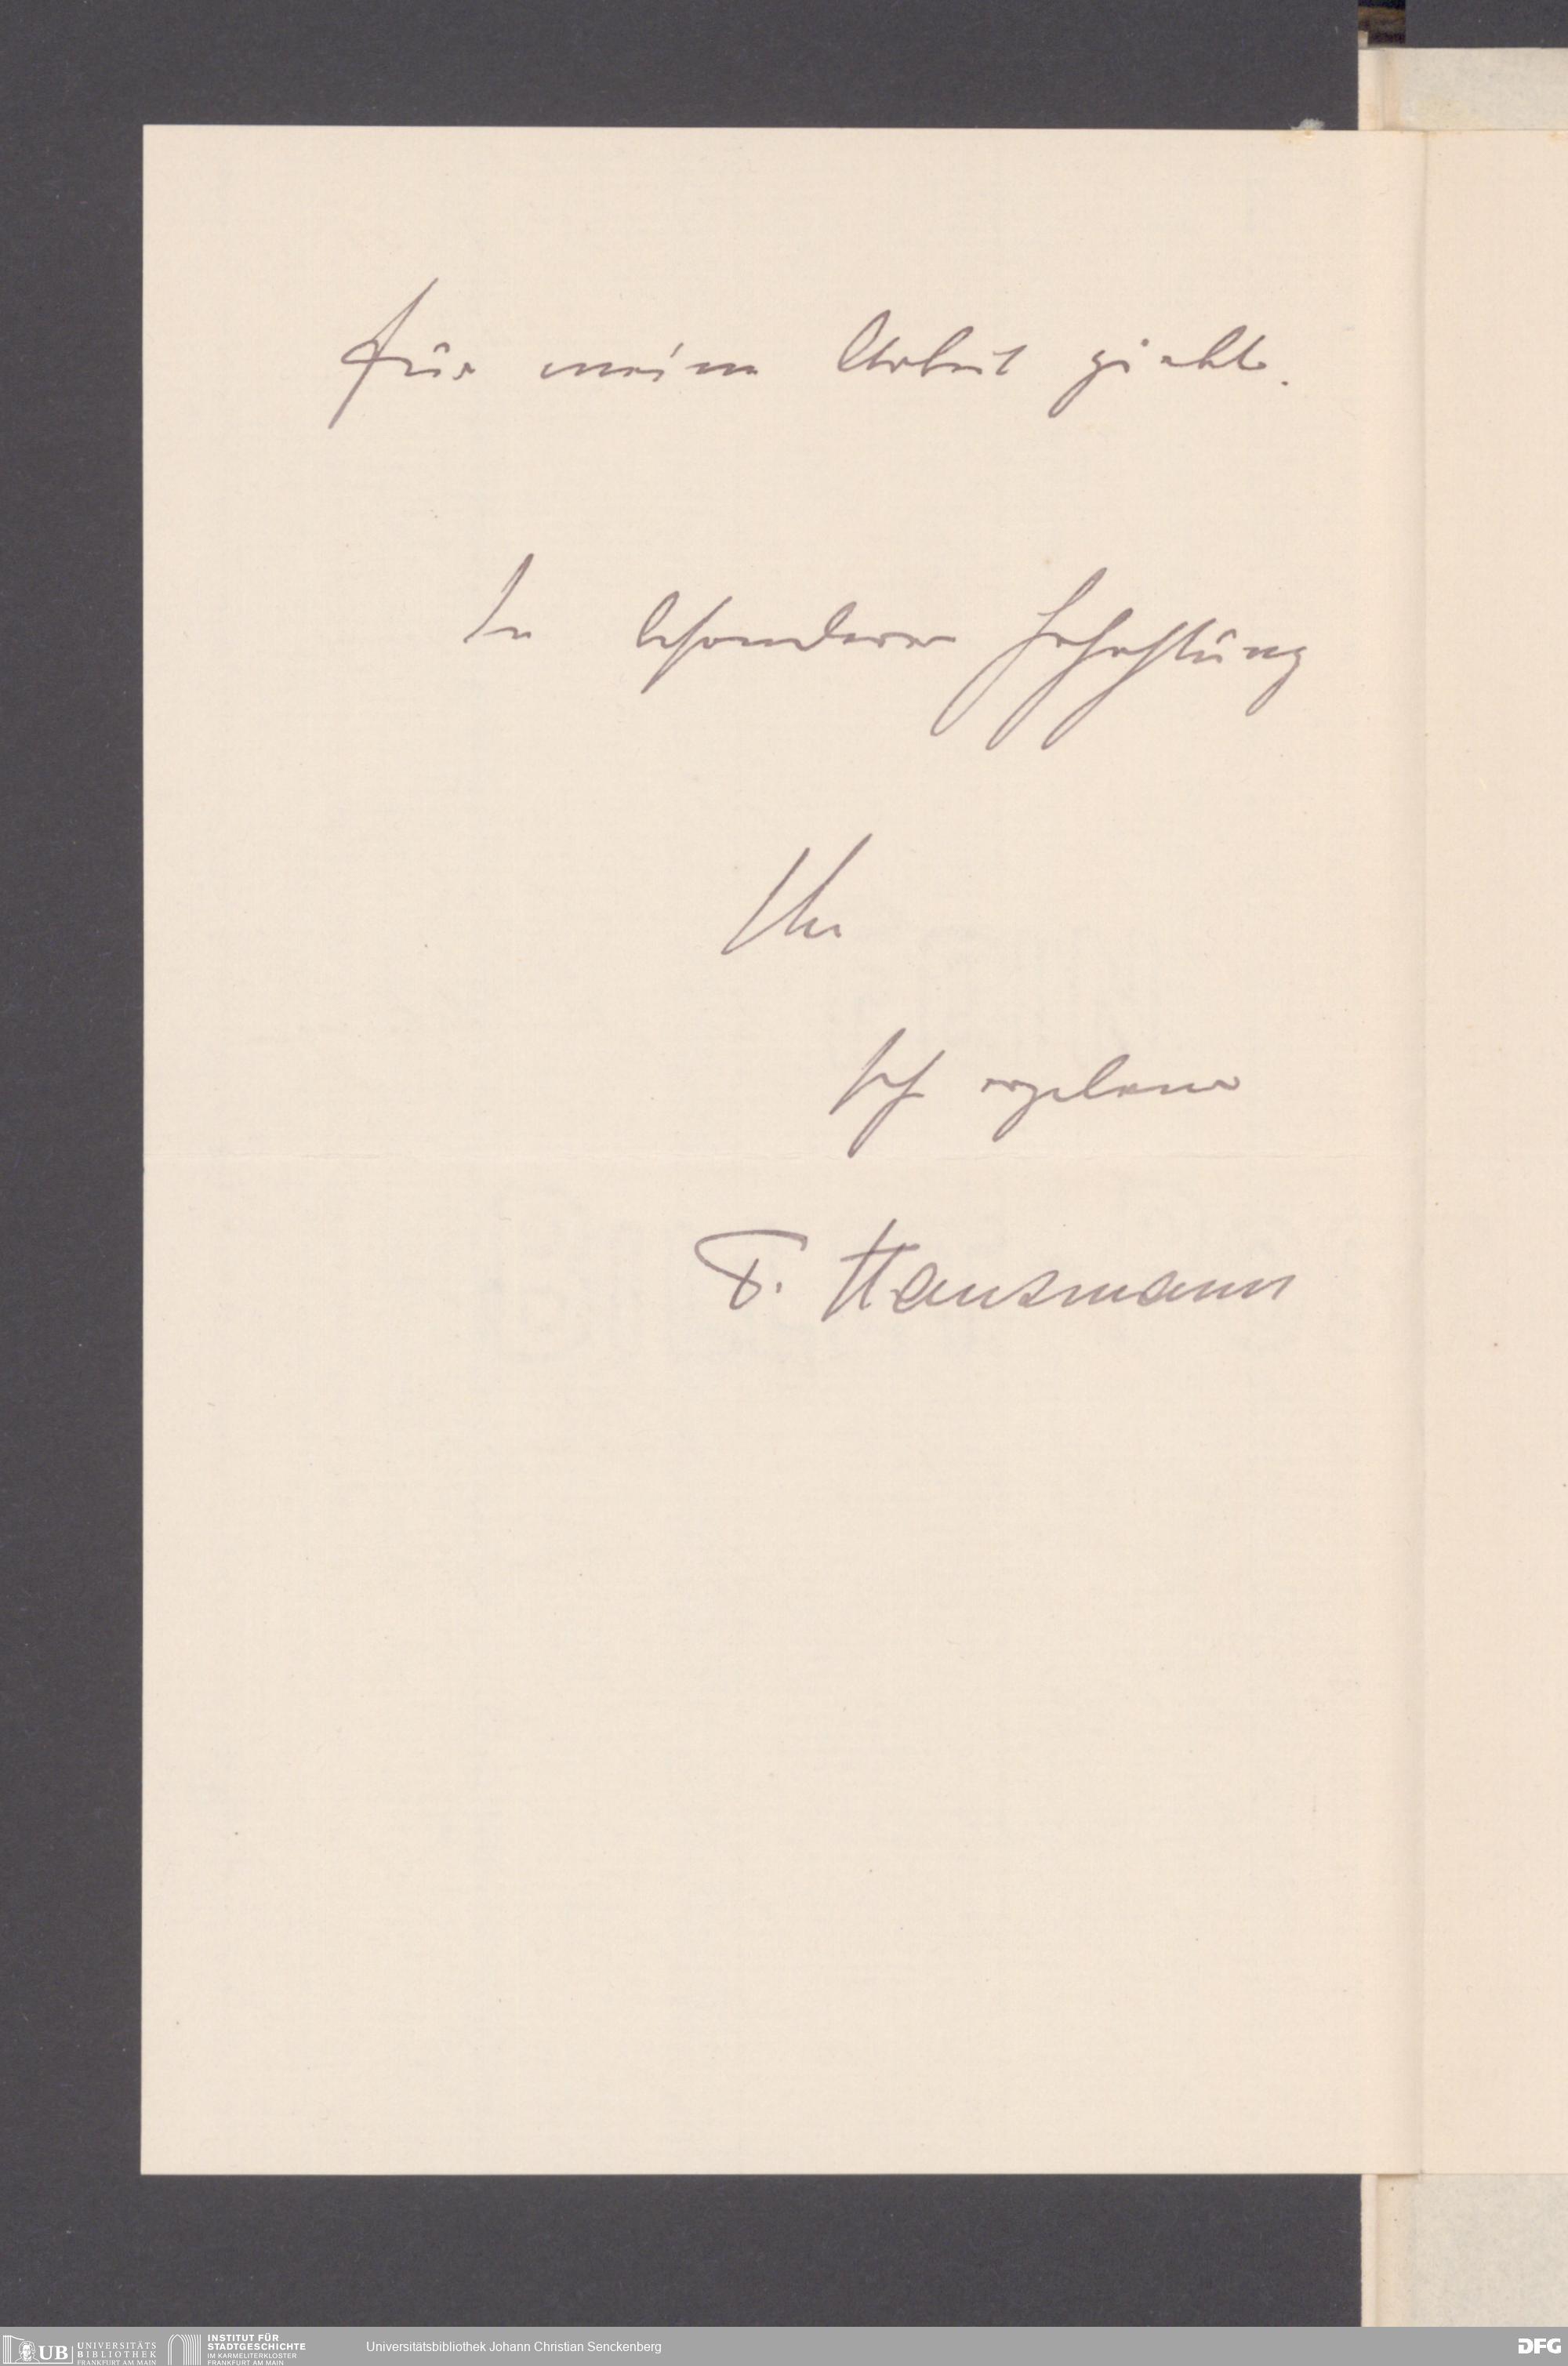 für meine Arbeit giebt.
In besonderer Hochachtung
Ihr
sehr ergebener
F. Hausmann
UB UNIVERSITÄTS BIBLIOTHEK FRANKFURT AM MAIN
INSTITUT FÜR STADTGESCHICHTE IM KARMELITERKLOSTER FRANKFURT AM MAIN
Universitätsbibliothek Johann Christian Senckenberg
DFG